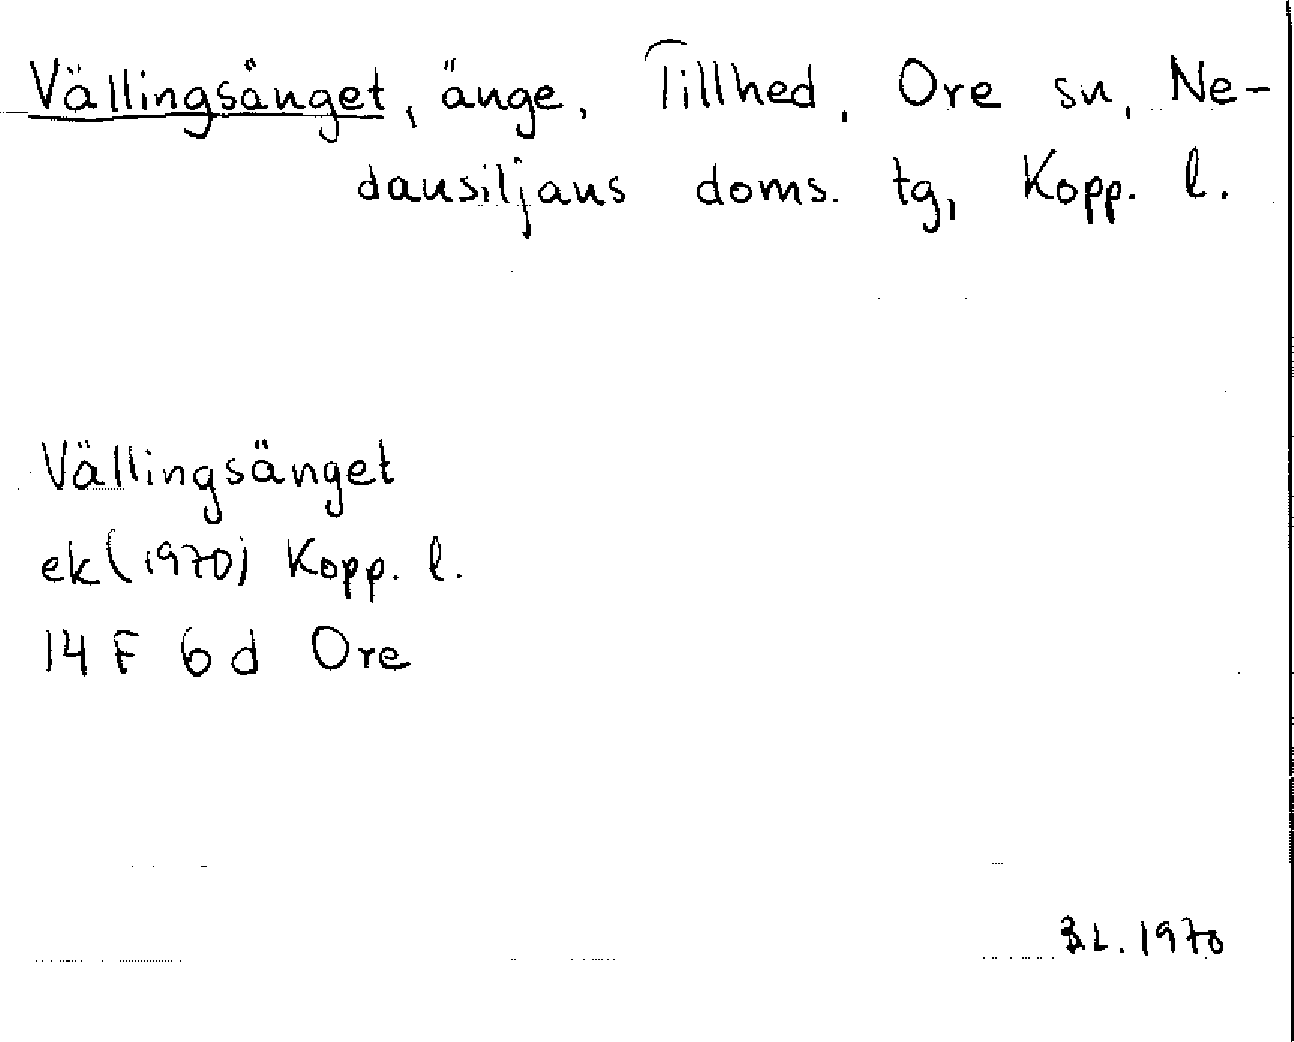 Vällingsänget, änge, Tillhed, Ore sn, Ne-
dansiljans doms. tg, Kopp. l.
Vällingsänget
ek (1970) Kopp. l.
14 F 6 d Ore
1970